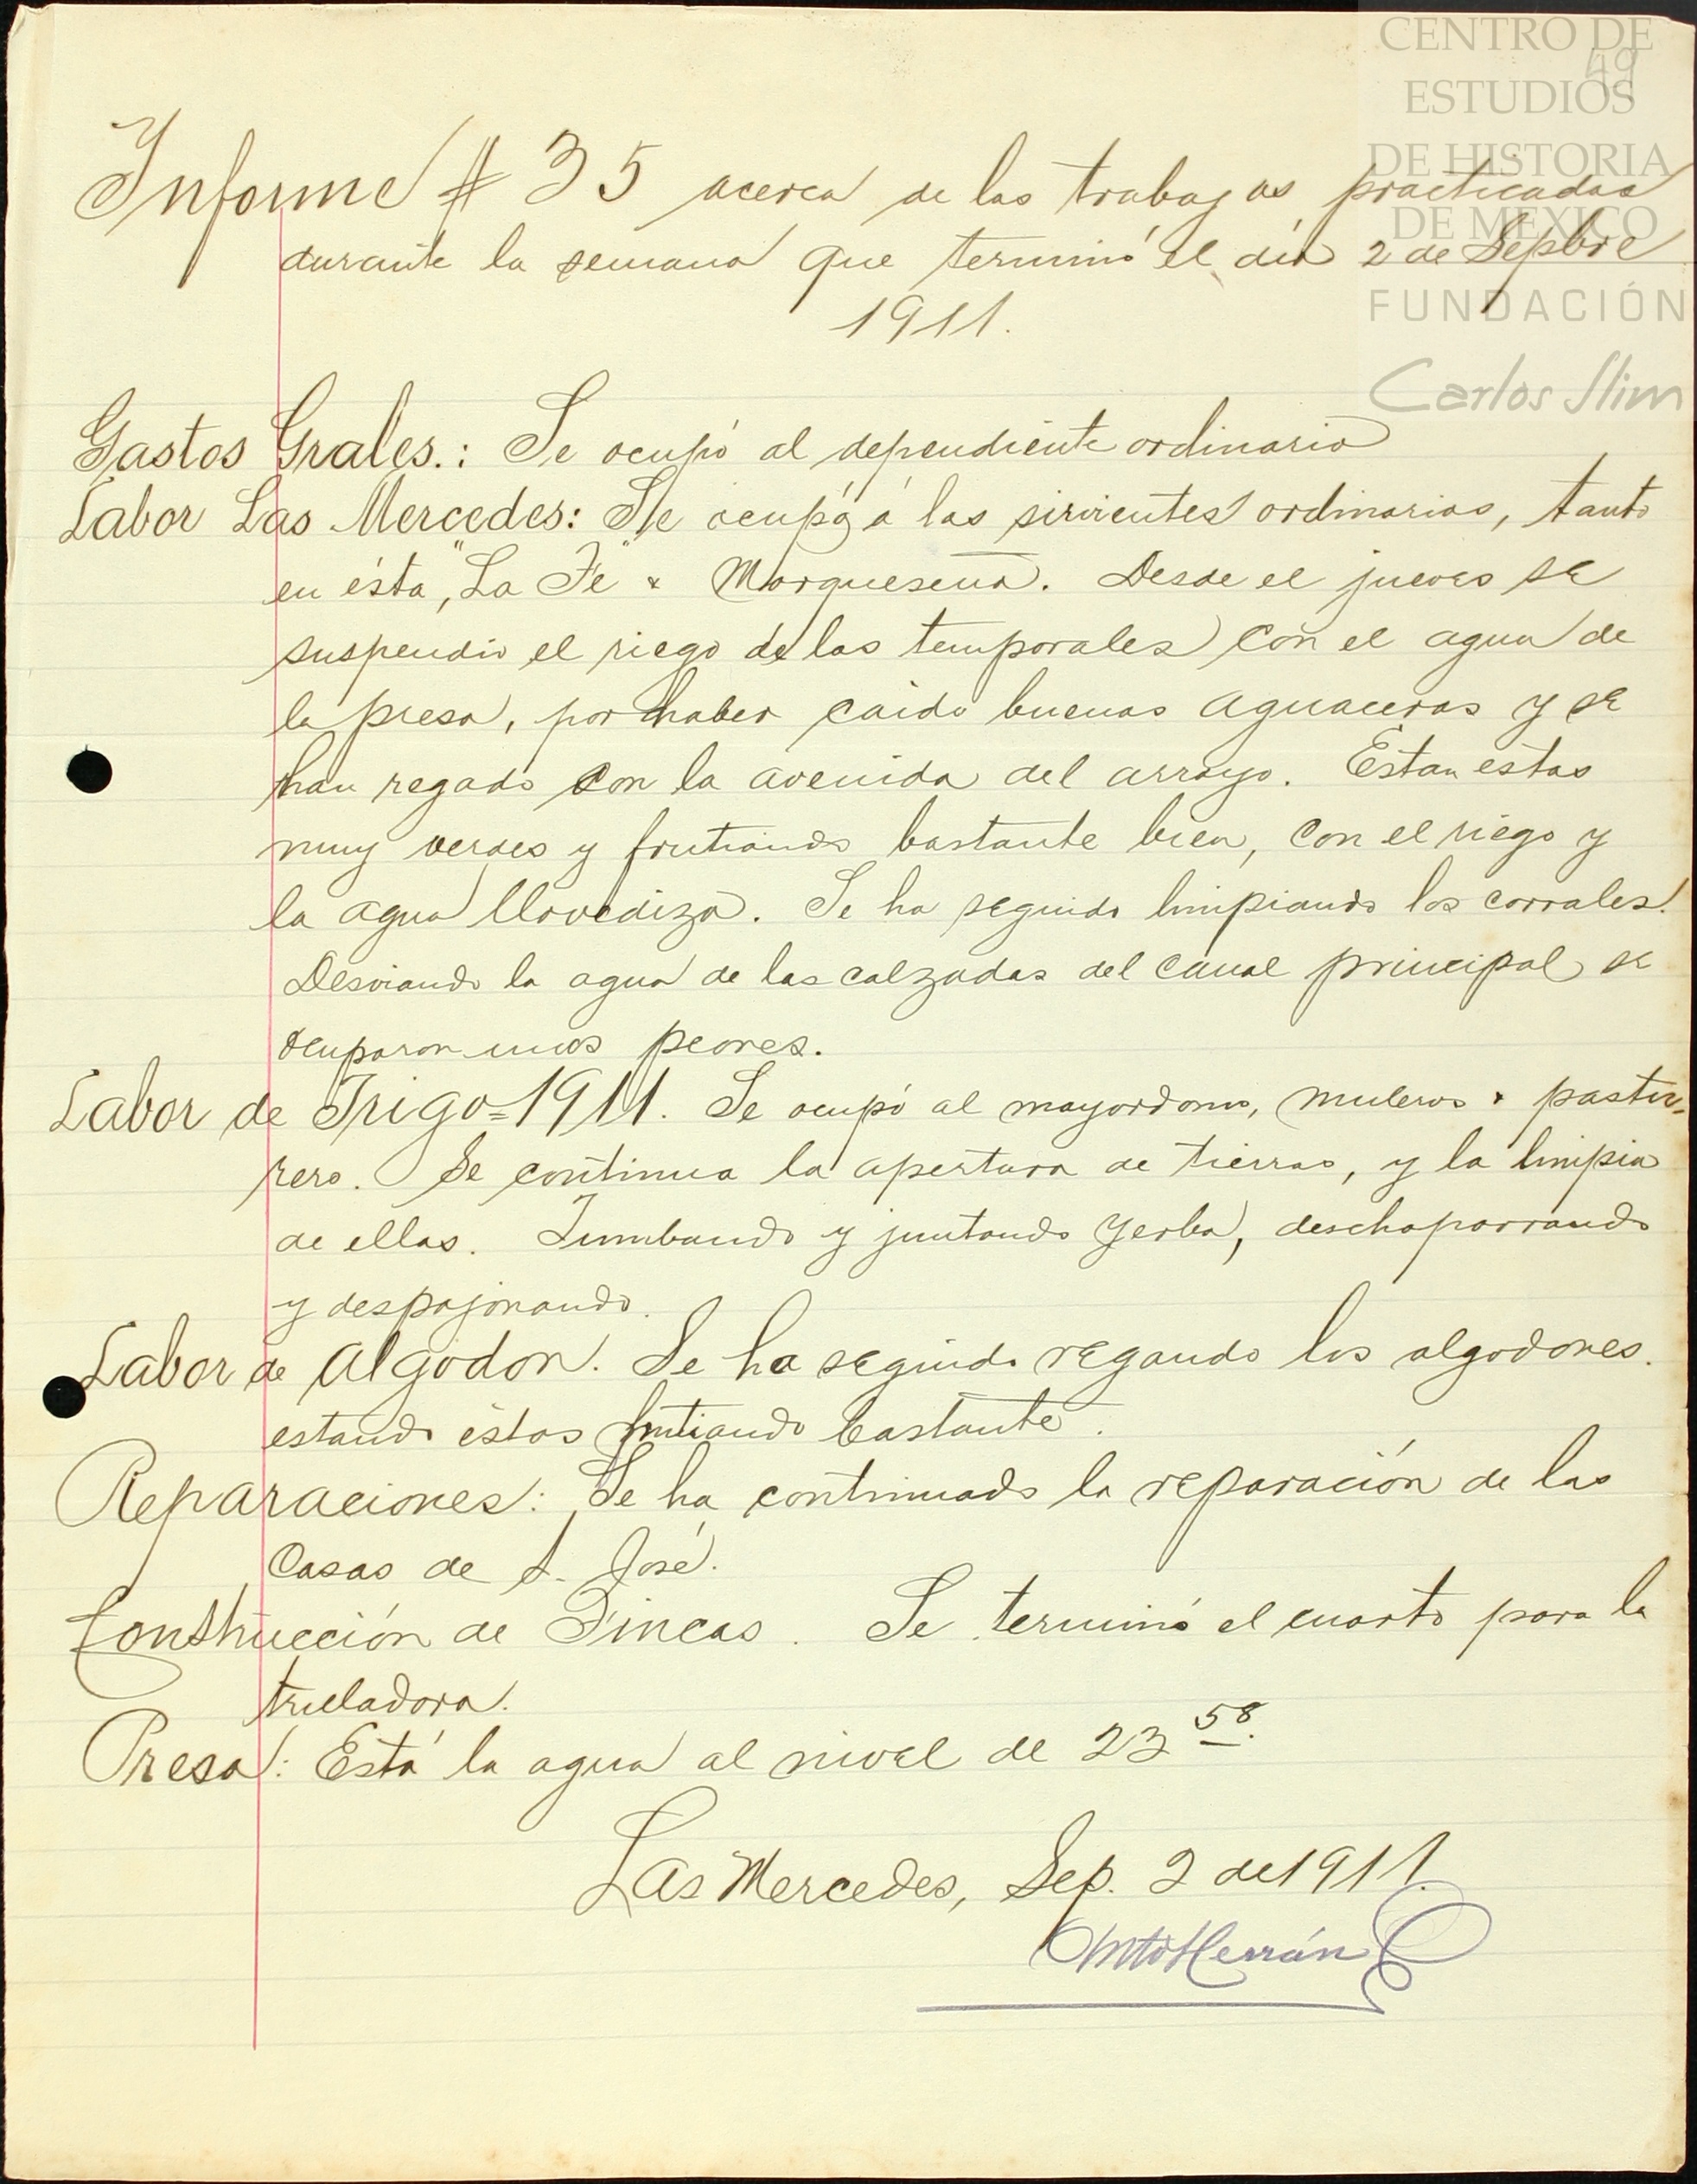 CENTRO DE
ESTUDIOS
DE HISTORIA
DE MEXICO
FUNDACIÓN
Carlos Slim
49
Informe # 35 acerca de los trabajos practicados
durante la semana que terminó el día 2 de Sepbre
1911.
Gastos Grales.: Se ocupó al dependiente ordinario
Labor Las Mercedes: Se ocupó á los sirvientes ordinarios, tanto
en ésta, "La Fé" & Marqueseña. Desde el jueves se
suspendió el riego de los temporales con el agua de
la presa, por haber caido buenos aguaceros y se
han regado con la avenida del arroyo. Estan éstos
muy verdes y frutiando bastante bien, con el riego y
la agua llovediza. Se ha seguido limpiando los corrales.
Desviando la agua de las calzadas del canal principal se
ocuparon unos peones.
Labor de Trigo=1911. Se ocupó al mayordomo, muleros & pastu-
rero. Se continua la apertura de tierras, y la limpia
de ellas. Tumbando y juntando yerba, deschaparrando
y despajonando.
Labor de Algodon. Se ha seguido regando los algodones.
estando éstos frutiando bastante.
Reparaciones: Se ha continuado la reparación de las
Casas de S. José.
Construcción de Fincas. Se terminó el cuarto para la
trilladora.
Presa: Está la agua al nivel de 23 58.
Las Mercedes, Sep. 2 de 1911.
Anto Herrán